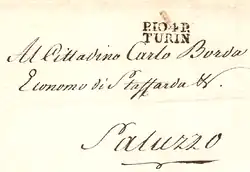 P.104.P.
TURIN
Al Cittadino Carlo Borda
Economo di Staffarda &.
Saluzzo